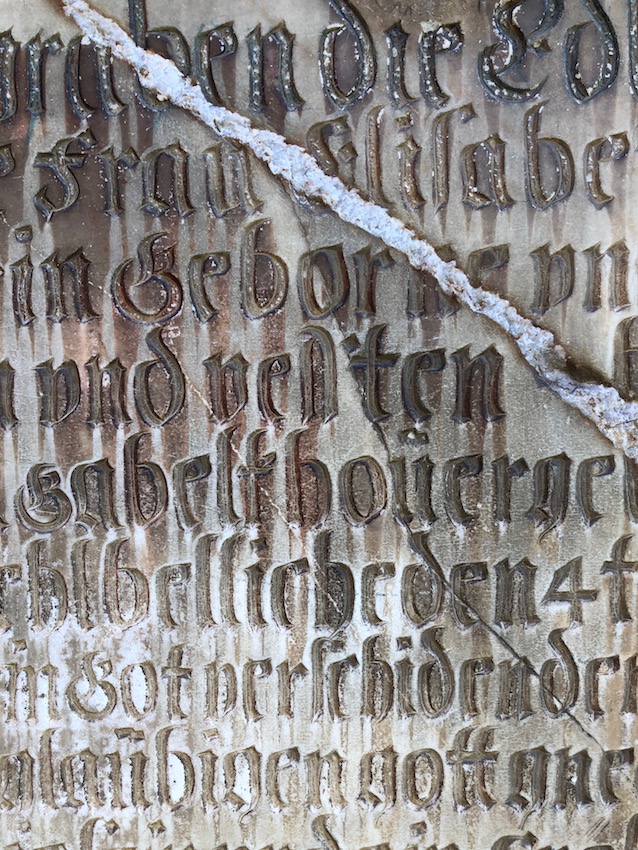 graben die Edl
Frau Elisabe
in Geborne vn
vnd vesten
Gabelkhoüer ge
den 4
in Got verschiden den
laübigen gott gne